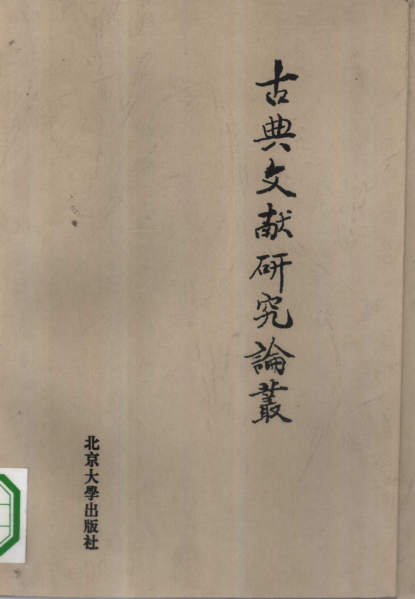 古典文献研究論叢
北京大學出版社